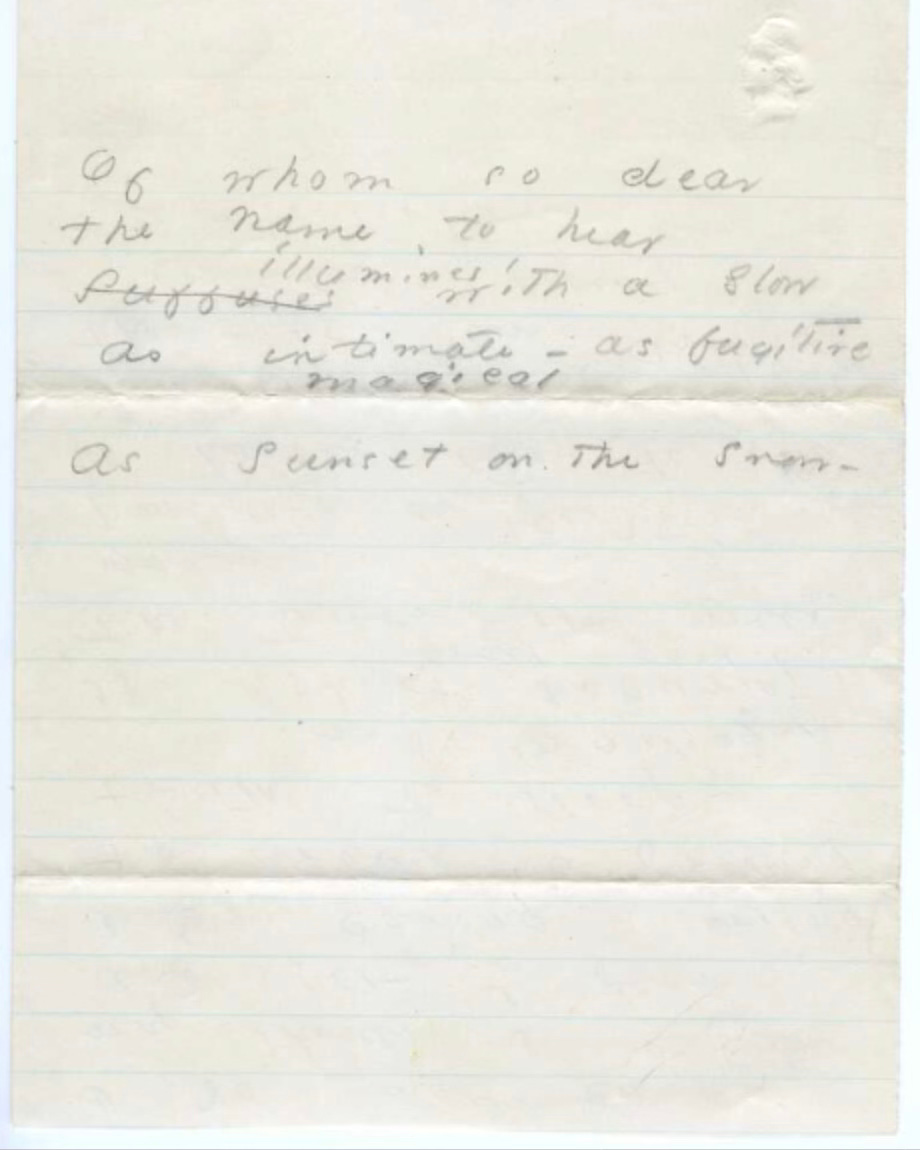 Of whom so dear
the name to hear
illumines
Suffuses with a Glow
As intimate - as fugitive
magical
As Sunset on the Snow -